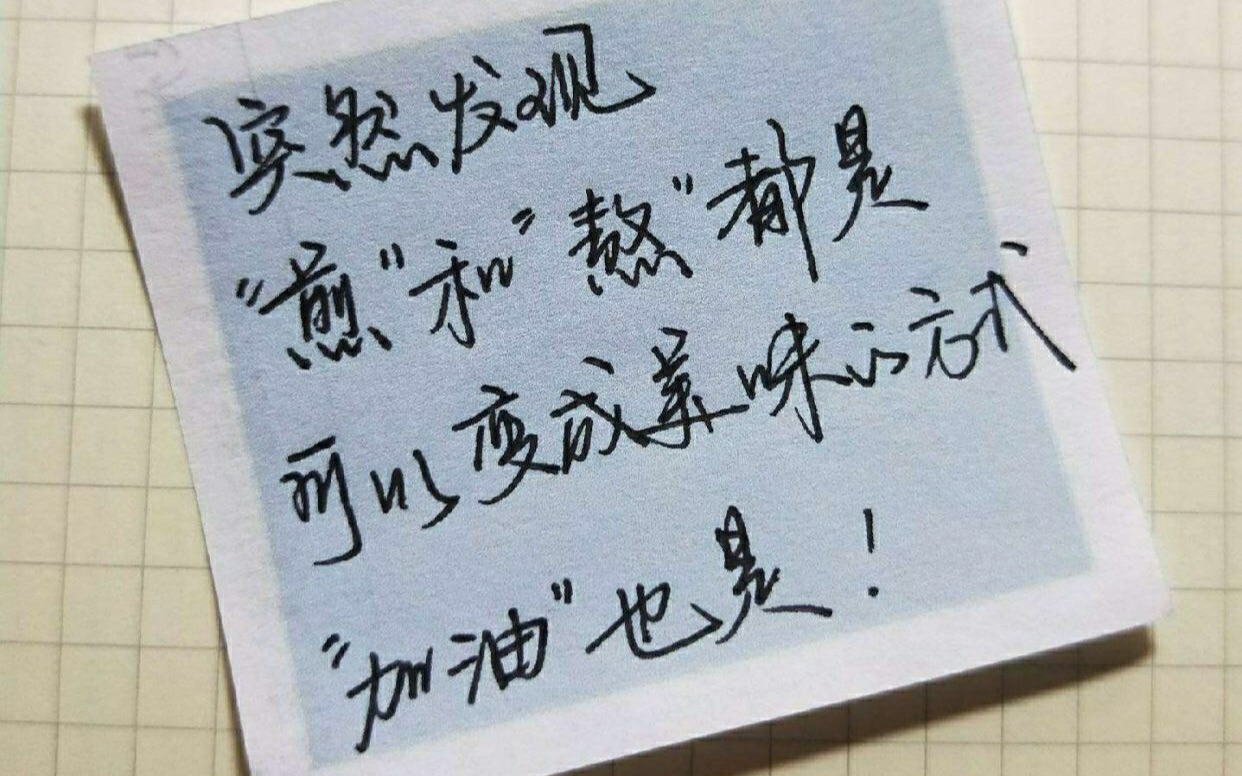 突然发现
“煎”和“熬”都是
可以变成美味的方式
“加油”也是！